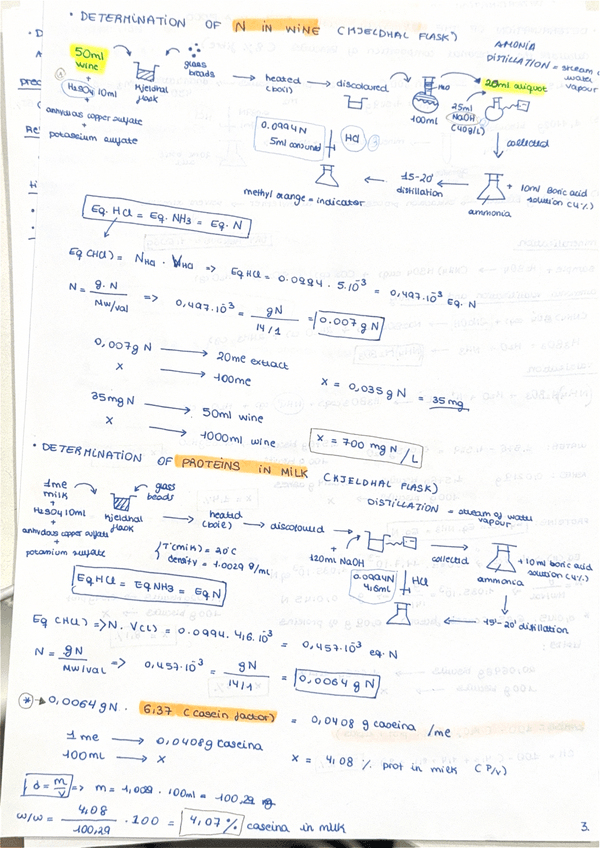 • DETERMINATION OF N IN WINE (KJELDHAL FLASK)
50ml wine
+
H₂SO₄ 10ml
+
anhydrous copper sulfate
+
potassium sulfate
kjeldhal flask
glass beads
heated (boil)
discoloured
H₂O
100ml
AMONÍA
DISTILLATION = stream of water vapour
20ml aliquot
25ml NaOH (40g/L)
collected
+ 10ml Boric acid solution (4%)
ammonia
15-20' distillation
0.0994N
5ml consumed
HCl
methyl orange = indicator
Eq. HCl = Eq. NH3 = Eq. N
Eq (HCl) = N HCl · V HCl => Eq HCl = 0.0994 · 5.10⁻³ = 0,497.10⁻³ Eq. N
N = g. N / MW/val => 0,497.10⁻³ = gN / 14/1 = 0.007 g N
0,007g N → 20ml extract
x → 100ml
x = 0,035 g N = 35mg
35mg N → 50ml wine
x → 1000ml wine
x = 700 mg N/L
• DETERMINATION OF PROTEINS IN MILK (KJELDHAL FLASK)
1ml milk
+
H₂SO₄ 10ml
+
anhydrous copper sulfate
+
potassium sulfate
kjeldhal flask
glass beads
heated (boil)
discoloured
DISTILLATION = stream of water vapour
T°(milk) = 20°C
density = 1.0029 g/ml
+20ml NaOH
collected
+ 10ml boric acid solution (4%)
ammonia
0.0994N
4,6ml
HCl
15'-20' distillation
Eq HCl = Eq NH3 = Eq N
Eq (HCl) => N. V(L) = 0.0994. 4,6.10⁻³ = 0,457.10⁻³ eq. N
N = gN / MW/val => 0,457.10⁻³ = gN / 14/1 = 0.0064 g N
* → 0,0064 gN · 6,37 (casein factor) = 0,0408 g caseina /ml
1 ml → 0,0408g caseina
100ml → x
x = 4,08 % prot in milk (P/V)
d = m/v => m = 1,0029 · 100ml = 100,29 g
w/w = 4,08 / 100,29 · 100 = 4,07% caseina in milk
3.